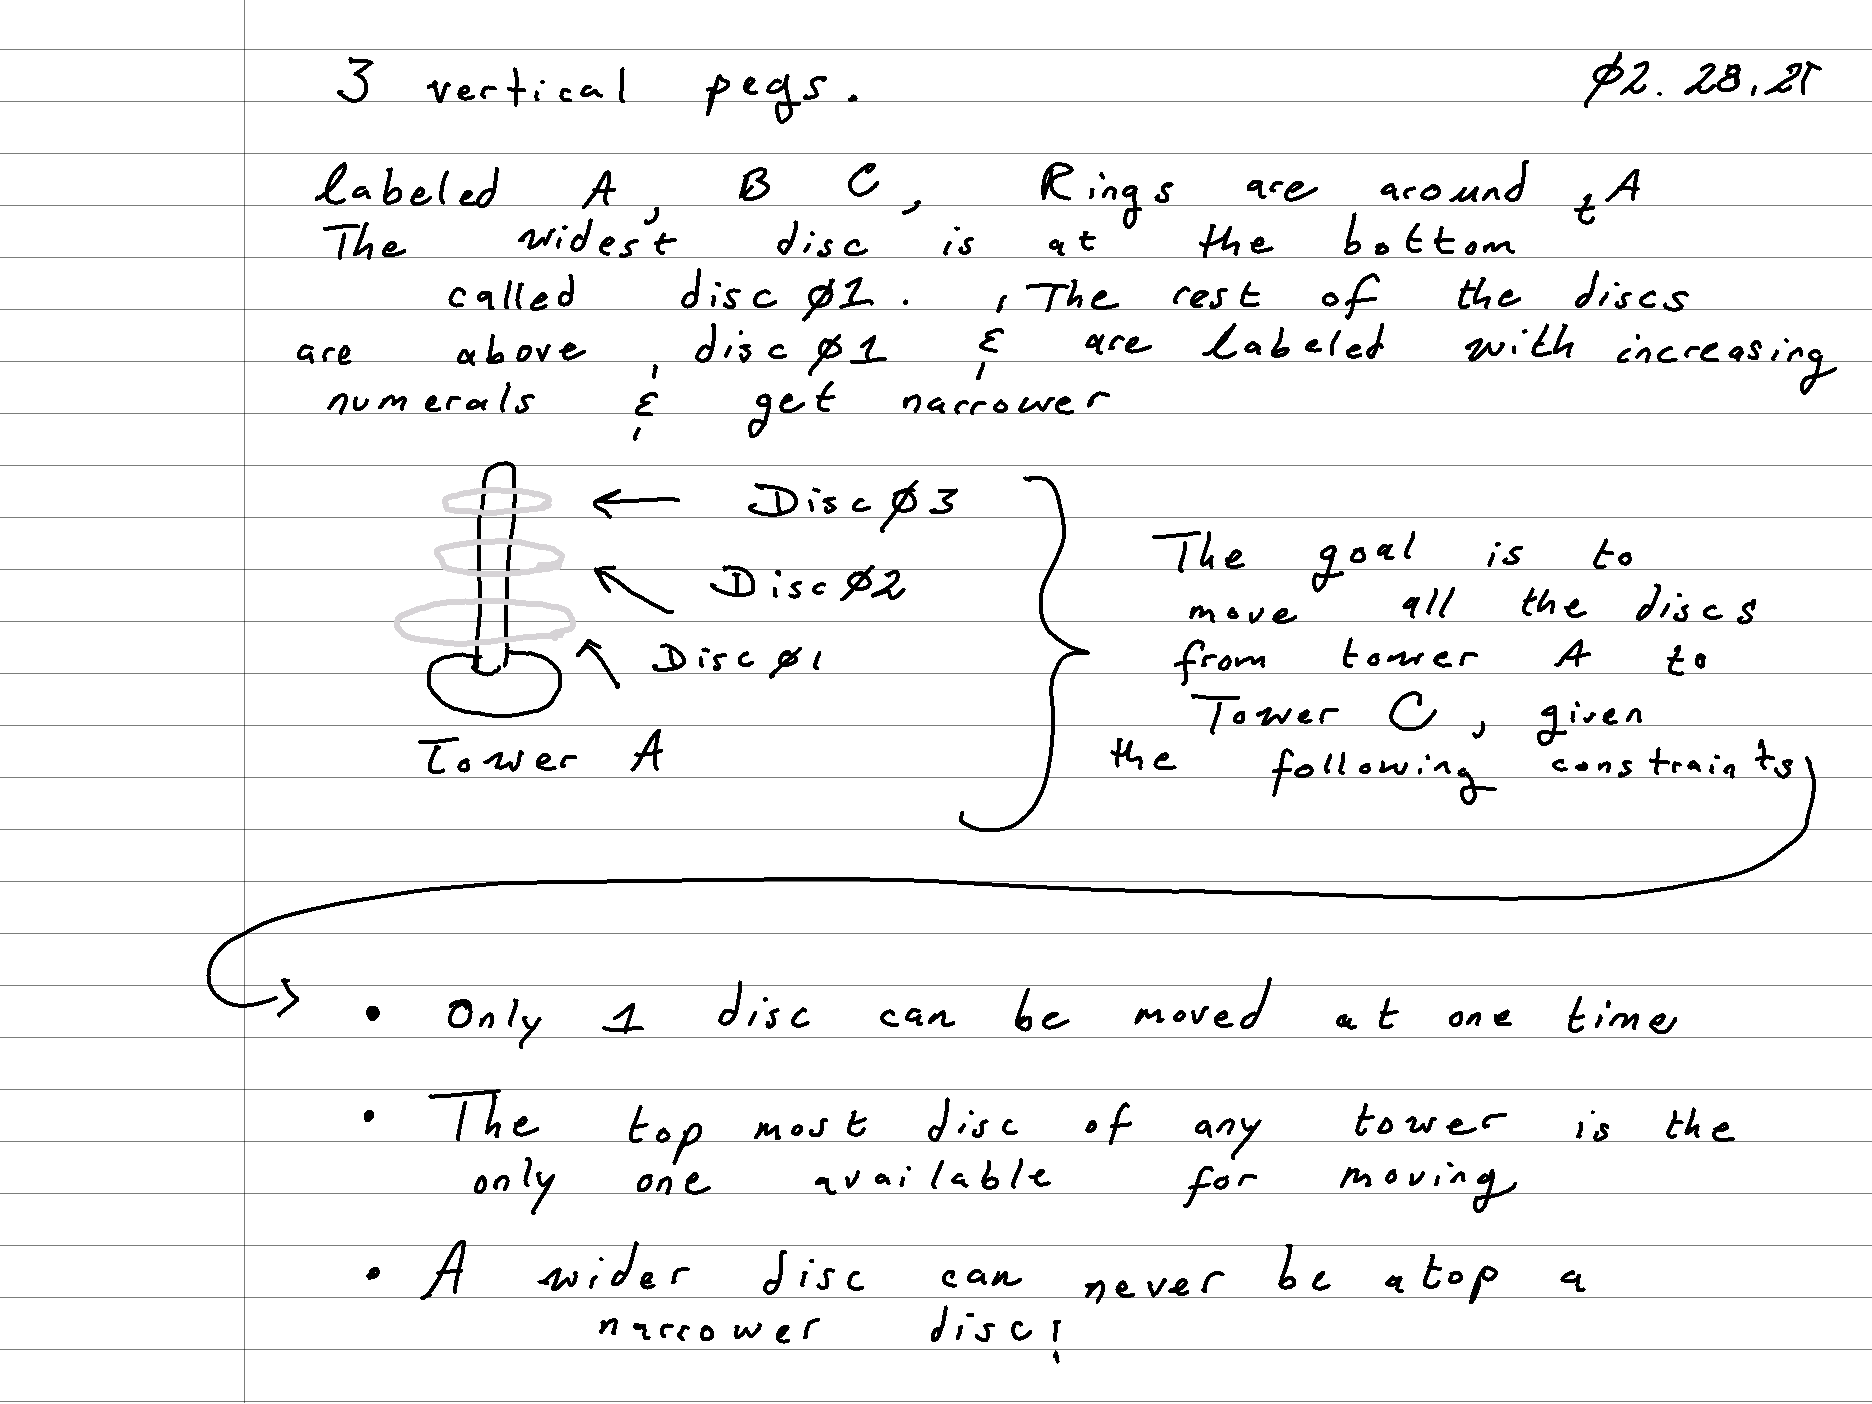 3 vertical pegs.
ø2.28.25
labeled A, B C, Rings are around tA
The widest disc is at the bottom
called disc ø1. , The rest of the discs
are above disc ø1 & are labeled with increasing
numerals & get narrower
Disc ø3
Disc ø2
Disc ø1
Tower A
The goal is to
move all the discs
from tower A to
Tower C, given
the following constraints
• Only 1 disc can be moved at one time
• The top most disc of any tower is the
only one available for moving
• A wider disc can never be atop a
narrower disc!